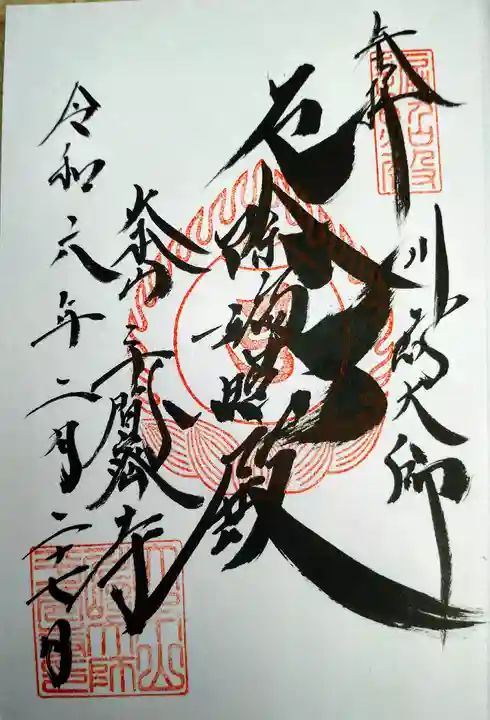 奉拝
川崎大師
厄除遍照殿
大本山 平間寺
令和六年二月二十七日